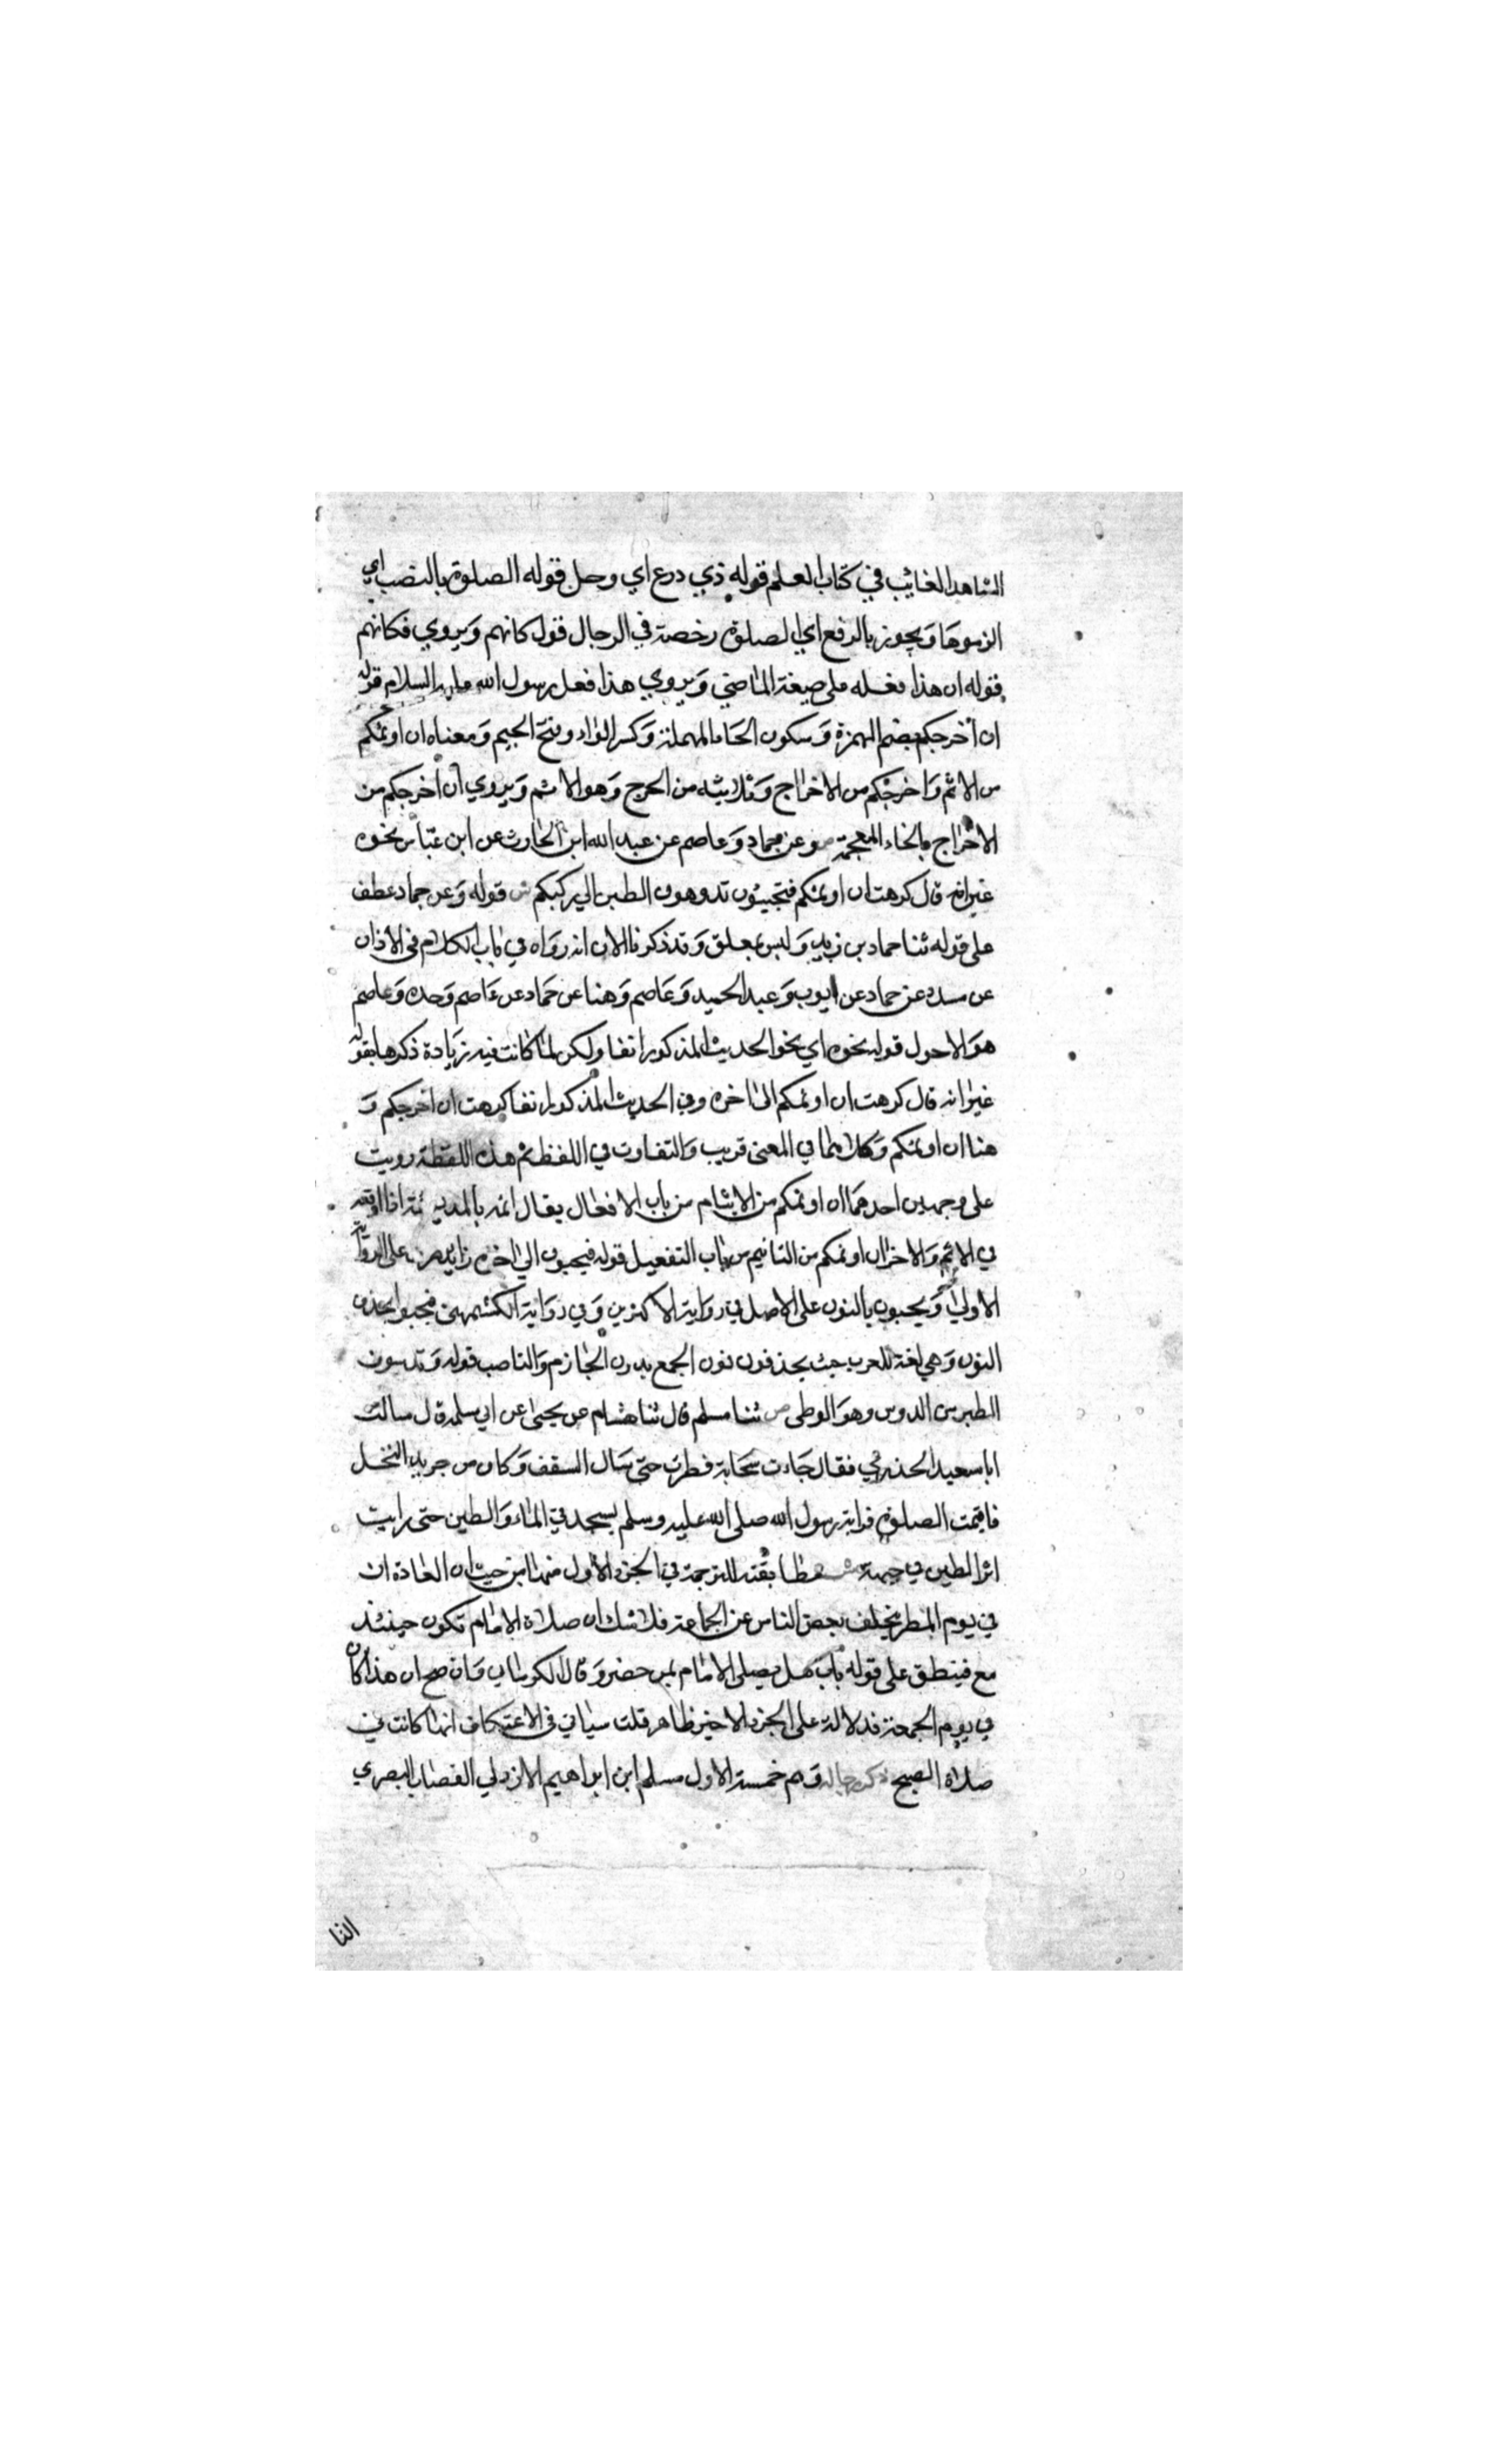 الشاهد الغائب في كتاب العلم قوله ذي ردع اي وحل قوله الصلوة بالنصب اي
الزموها ويجوز بالرفع اي الصلوة رخصة في الرحال قوله كانهم ويروي فكانهم
قوله ان هذا فعله على صيغة الماضي ويروي هذا فعل رسول الله عليه السلام قوله
ان أحرجكم بضم الهمزة وسكون الحاء المهملة وكسر الواء وفتح الجيم ومعناه ان اوثمكم
من الاثم واخرجكم من الاخراج وثلاثيثه من الحرج وهو الاثم ويروي أن أخرجكم من
الاخراج بالخاء المعجمة ص وعن حماد وعاصم عن عبد الله ابن الحارث عن ابن عباس نحوه
غير انه قال كرهت ان اوثمكم فتجيئون تدوهون الطين الي ركبكم ش قوله وعن حماد عطف
على قوله ثنا حماد بن زيد وليس بمعلق وقد ذكرنا الان انه رواه في باب الكلام في الاذان
عن مسدد عن حماد عن ايوب وعبد الحميد وعاصم وهنا عن حماد عن عاصم وحده وعاصم
هو الاحول قوله نحوه اي نحو الحديث المذكور انفا ولكن لما كانت فيه زيادة ذكرها بقوله
غير انه قال كرهت ان اوثمكم الى اخره وفي الحديث المذكور انفا كرهت ان احرجكم و
هنا ان اوثمكم وكلاهما في المعنى قريب والتفاوت في اللفظ ثم هذه اللفظة رويت
على وجهين احدهما ان اوثمكم من الايثام من باب الافعال يقال اثمه بالمد يوثمه اذا اوقعه
في الاثم والاخر ان اوثمكم من التاثيم من باب التفعيل قوله فيجيون الي اخره زايدة على الرواية
الاولي ويجيون بالنون على الاصل في رواية الاكثرين وفي رواية الكشميهني فيجيوا بحذف
النون وهي لغة للعرب حيث يحذفون نون الجمع بدون الجازم والناصب قوله وتدسون
الطين من الدوس وهو الوطى ص ثنا مسلم قال ثنا هشام عن يحيى عن ابي سلمة قال سالت
ابا سعيد الخدري فقال جاءت سحابة فطرت حتى سال السقف وكان من جريد النخل
فاقيمت الصلوة فرايت رسول الله صلى الله عليه وسلم يسجد في الماء والطين حتى رايت
اثر الطين في جبهته ش مطابقته للترجمة في الجزء الاول منها من حيث ان العادة ان
في يوم المطر يتخلف بعض الناس عن الجماعة فلا شك ان صلاة الامام تكون حينئذ
مع فينطبق على قوله باب هل يصلي الامام بمن حضر وقال الكرماني فان صح ان هذا كان
في يوم الجمعة فدلالة على الجزء الاخير ظاهر قلت سياتي في الاعتكاف انها كانت في
صلاة الصبح ذكر رجاله وهم خمسة الاول مسلم ابن ابراهيم الازدي القصاب البصري